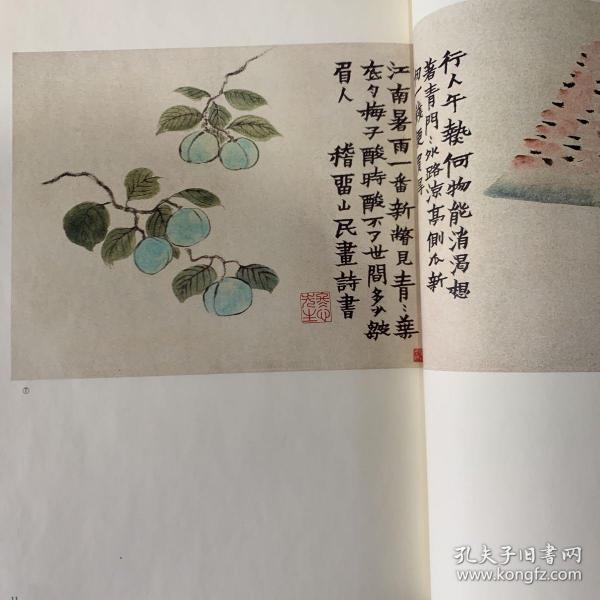 江南暑雨一番新瞥見青〻葉
底勻梅子酸時酸不了世間多少皺
眉人 稽畱山民畫詩書
冬心先生
行人午熱何物能消渴想
著青門〻外路涼亭側瓜新
切一
⑦
11
孔夫子旧书网
www.kongfz.com